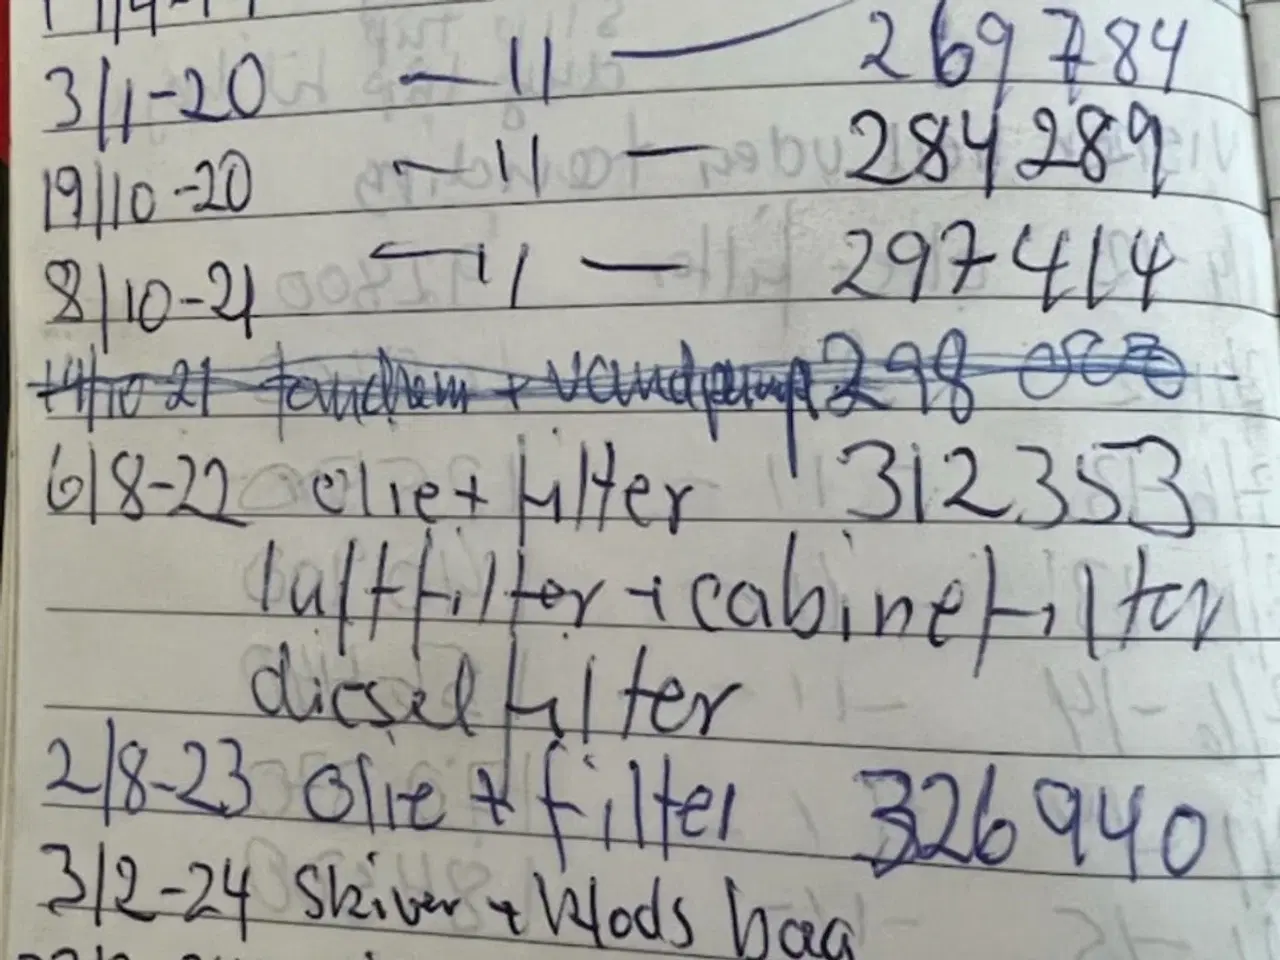 3/1-20 — 11 — 269 784
19/10-20 — 11 — 284 289
8/10-21 — 11 — 297 414
14/10 21 tandrem + vandpump 298 000
6/8-22 olie + filter 312 353
luftfilter + cabinefilter
dieselfilter
2/8-23 Olie + filter 326 940
3/2-24 Skiver + klods bag